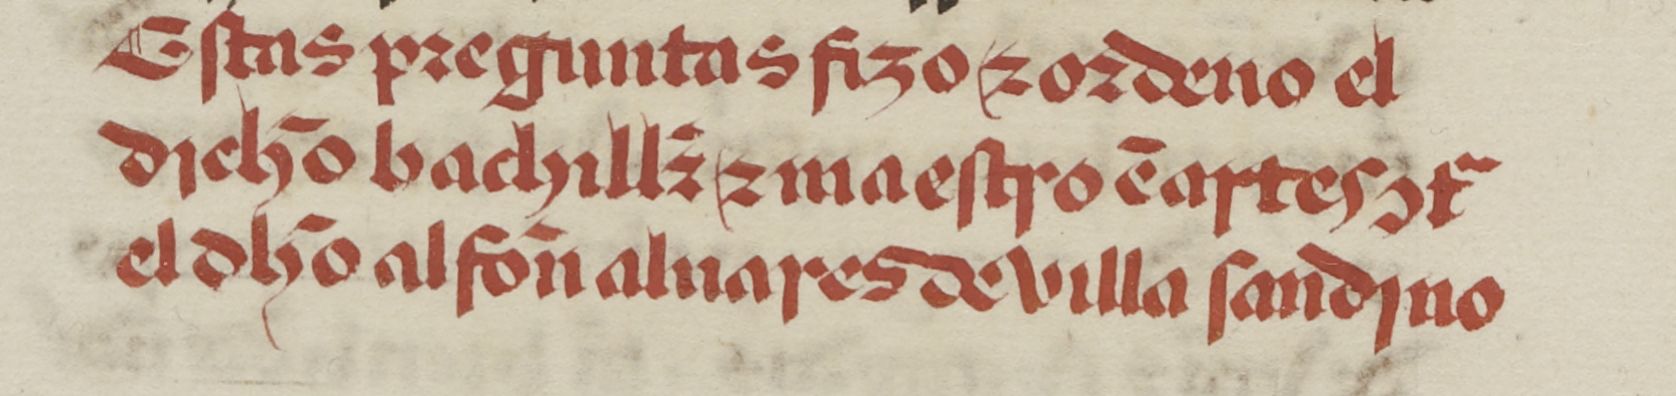 Estas preguntas fizo ⁊ ordeno el
dicħo bachillr̃ ⁊ maestro ẽ artes ꝯt̃
el dħo alfon̄ aluares de villa sandjno